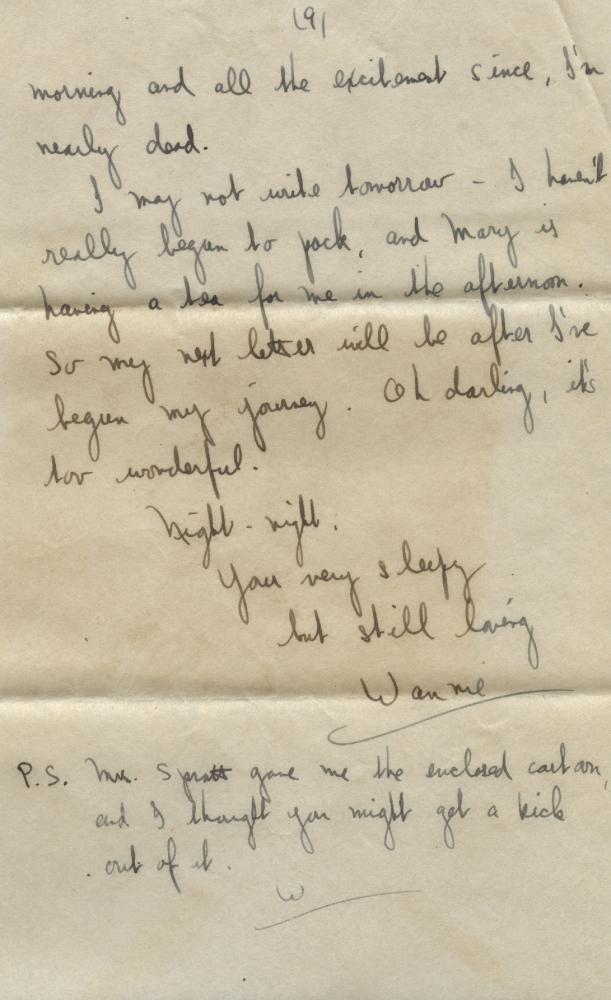 (9)
morning and all the excitement since, I'm
nearly dead.
I may not write tomorrow - I haven't
really begun to pack, and Mary is
having a tea for me in the afternoon.
So my next letter will be after I've
begun my journey. Oh darling, it's
too wonderful.
Night-night.
Your very sleepy
but still loving
Wannie
P.S. Mrs. Spratt gave me the enclosed cartoon,
and I thought you might get a kick
out of it.
W